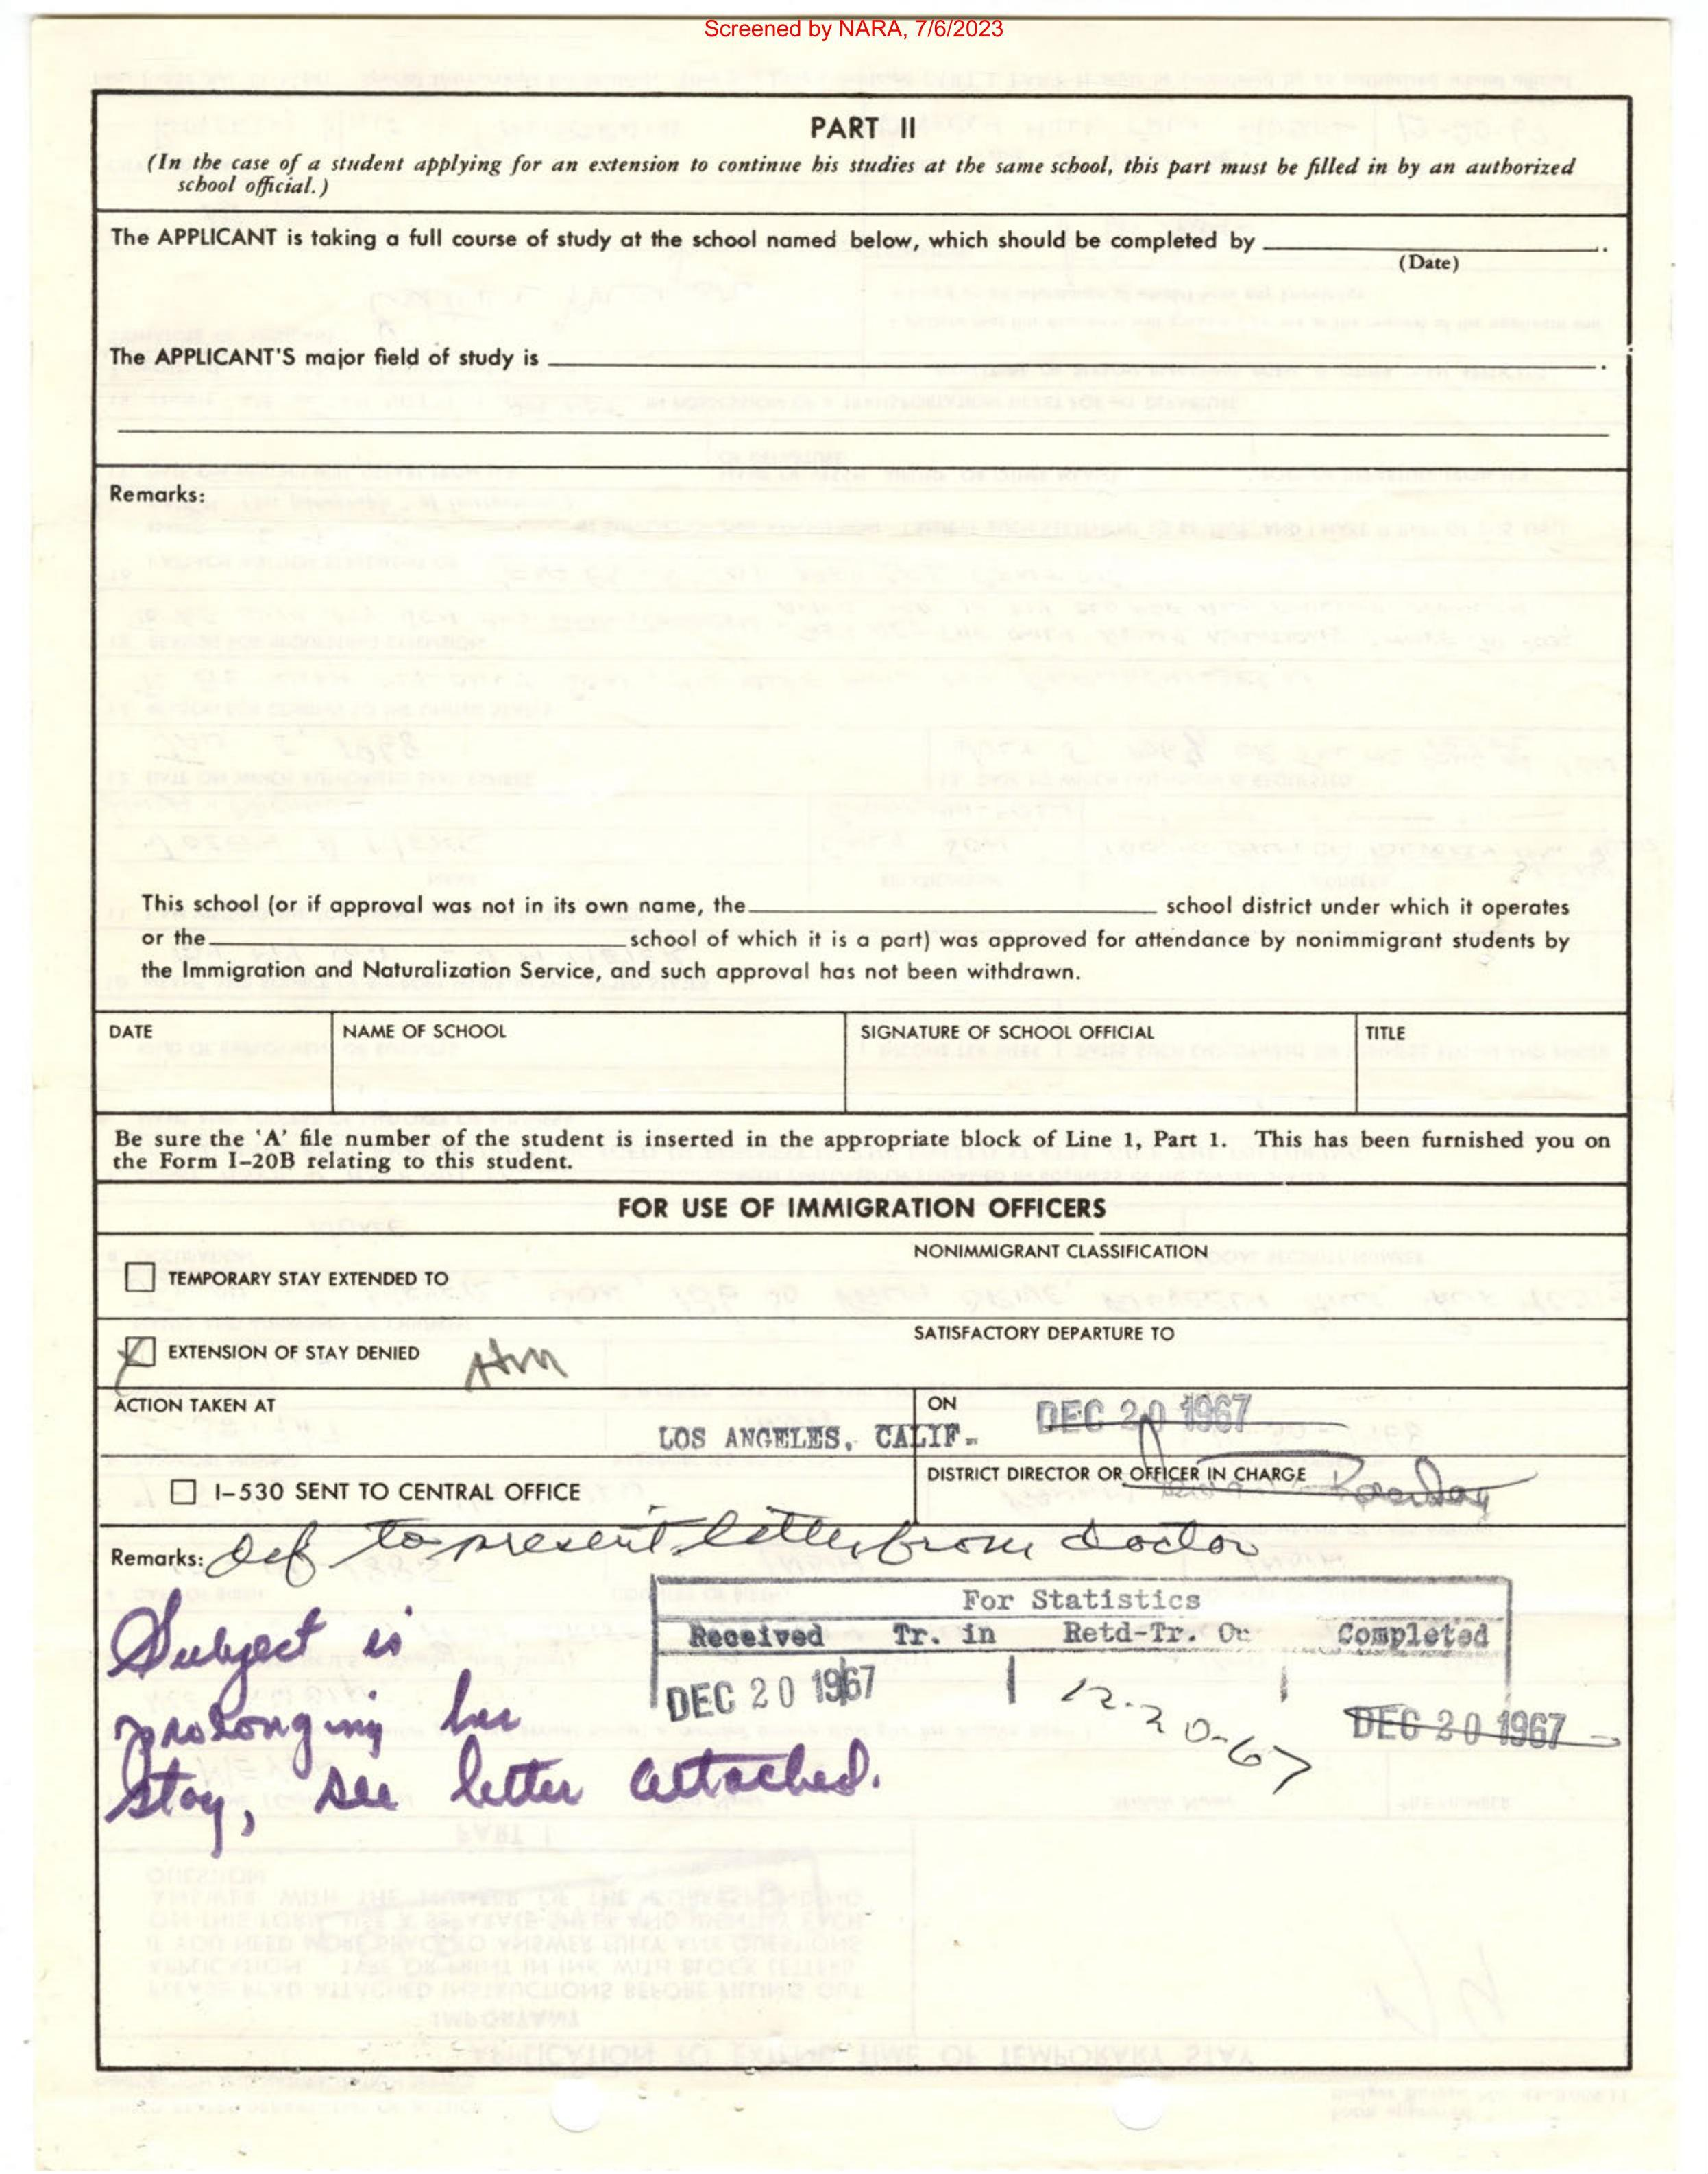 Screened by NARA, 7/6/2023
PART II
(In the case of a student applying for an extension to continue his studies at the same school, this part must be filled in by an authorized
school official.)
The APPLICANT is taking a full course of study at the school named below, which should be completed by .
(Date)
The APPLICANT'S major field of study is .
Remarks:
This school (or if approval was not in its own name, the school district under which it operates
or the school of which it is a part) was approved for attendance by nonimmigrant students by
the Immigration and Naturalization Service, and such approval has not been withdrawn.
DATE NAME OF SCHOOL SIGNATURE OF SCHOOL OFFICIAL TITLE
Be sure the 'A' file number of the student is inserted in the appropriate block of Line 1, Part 1. This has been furnished you on
the Form I-20B relating to this student.
FOR USE OF IMMIGRATION OFFICERS
NONIMMIGRANT CLASSIFICATION
TEMPORARY STAY EXTENDED TO
SATISFACTORY DEPARTURE TO
EXTENSION OF STAY DENIED
ACTION TAKEN AT ON DEC 20 1967
LOS ANGELES, CALIF.
DISTRICT DIRECTOR OR OFFICER IN CHARGE
I-530 SENT TO CENTRAL OFFICE
Remarks: Def to present letter from doctor
For Statistics
Received Tr. in Retd-Tr. Completed
DEC 20 1967 12-20-67 DEC 20 1967
Subject is
prolonging her
stay, see letter attached.